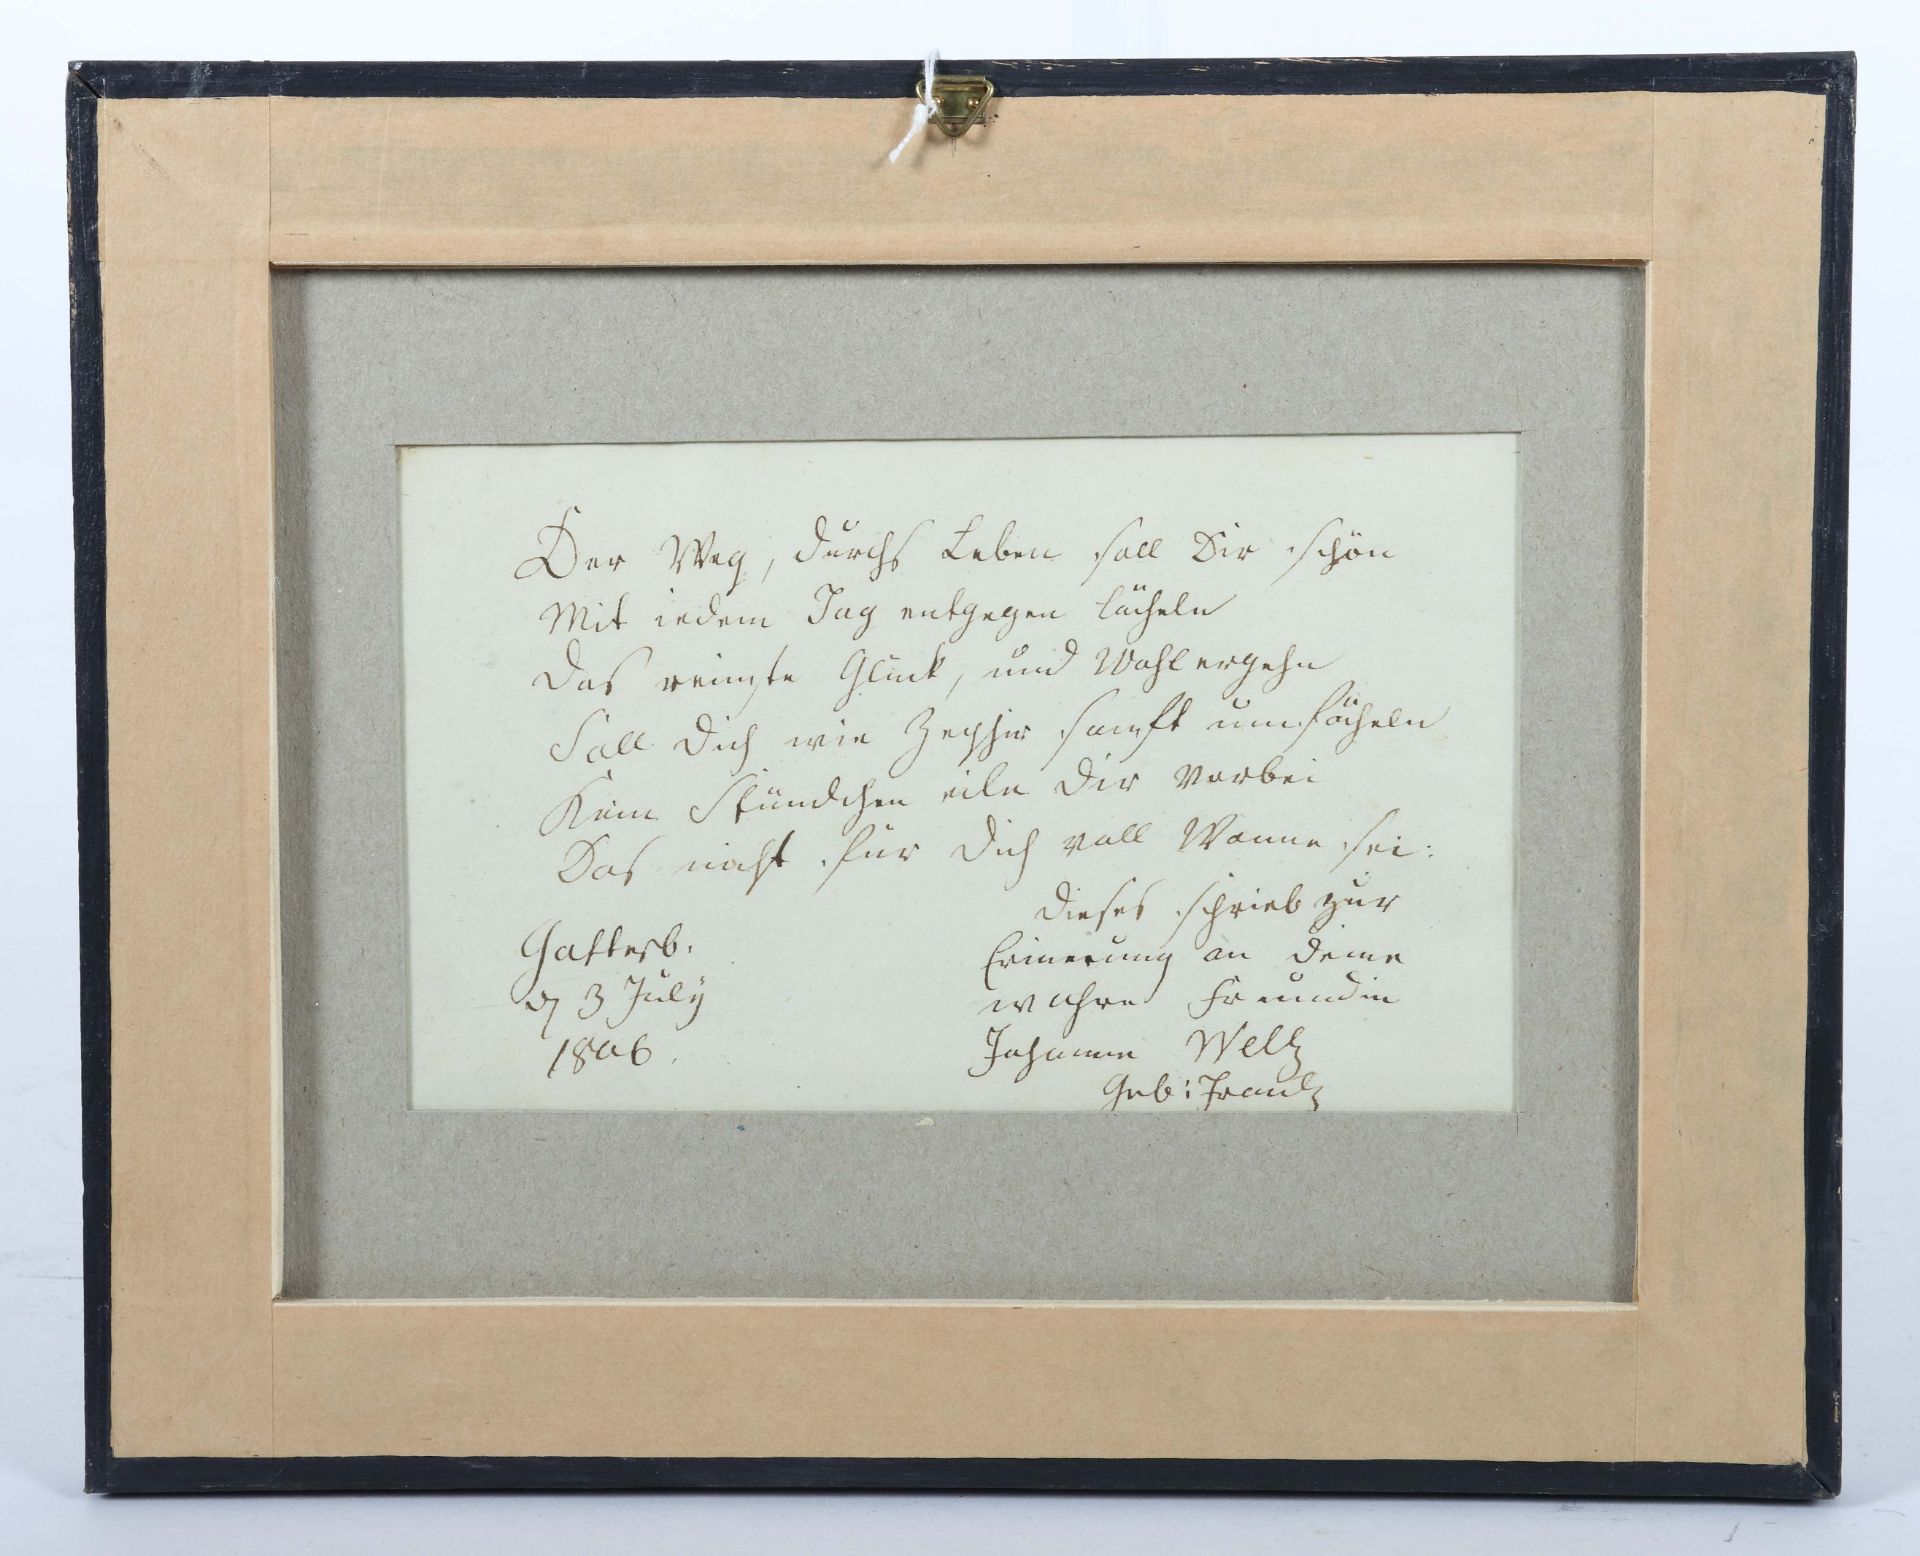 Der Weg, durchs Leben soll Dir schön
Mit iedem Tag entgegen lächeln
Das reinste Glück, und Wohlergehn
Soll Dich wie Zephir sanft umfächeln
Kein Stündchen eile Dir vorbei
Das nicht für Dich voll Wonne sei:
Dieses schrieb zur
Erinerung an deine
wahre Freundin
Johanne Weltz
Geb:
d 3 July
1806.